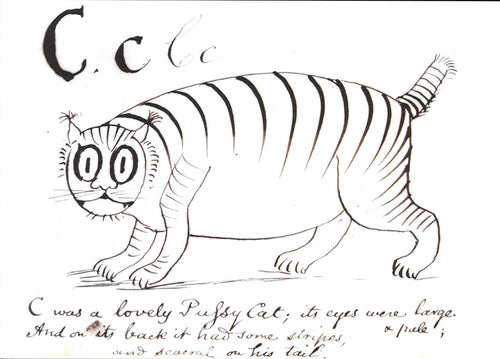 C. c C c
C was a lovely Pufsy Cat; its eyes were large
And on its back it had some stripes, & pale;
and several on his tail.